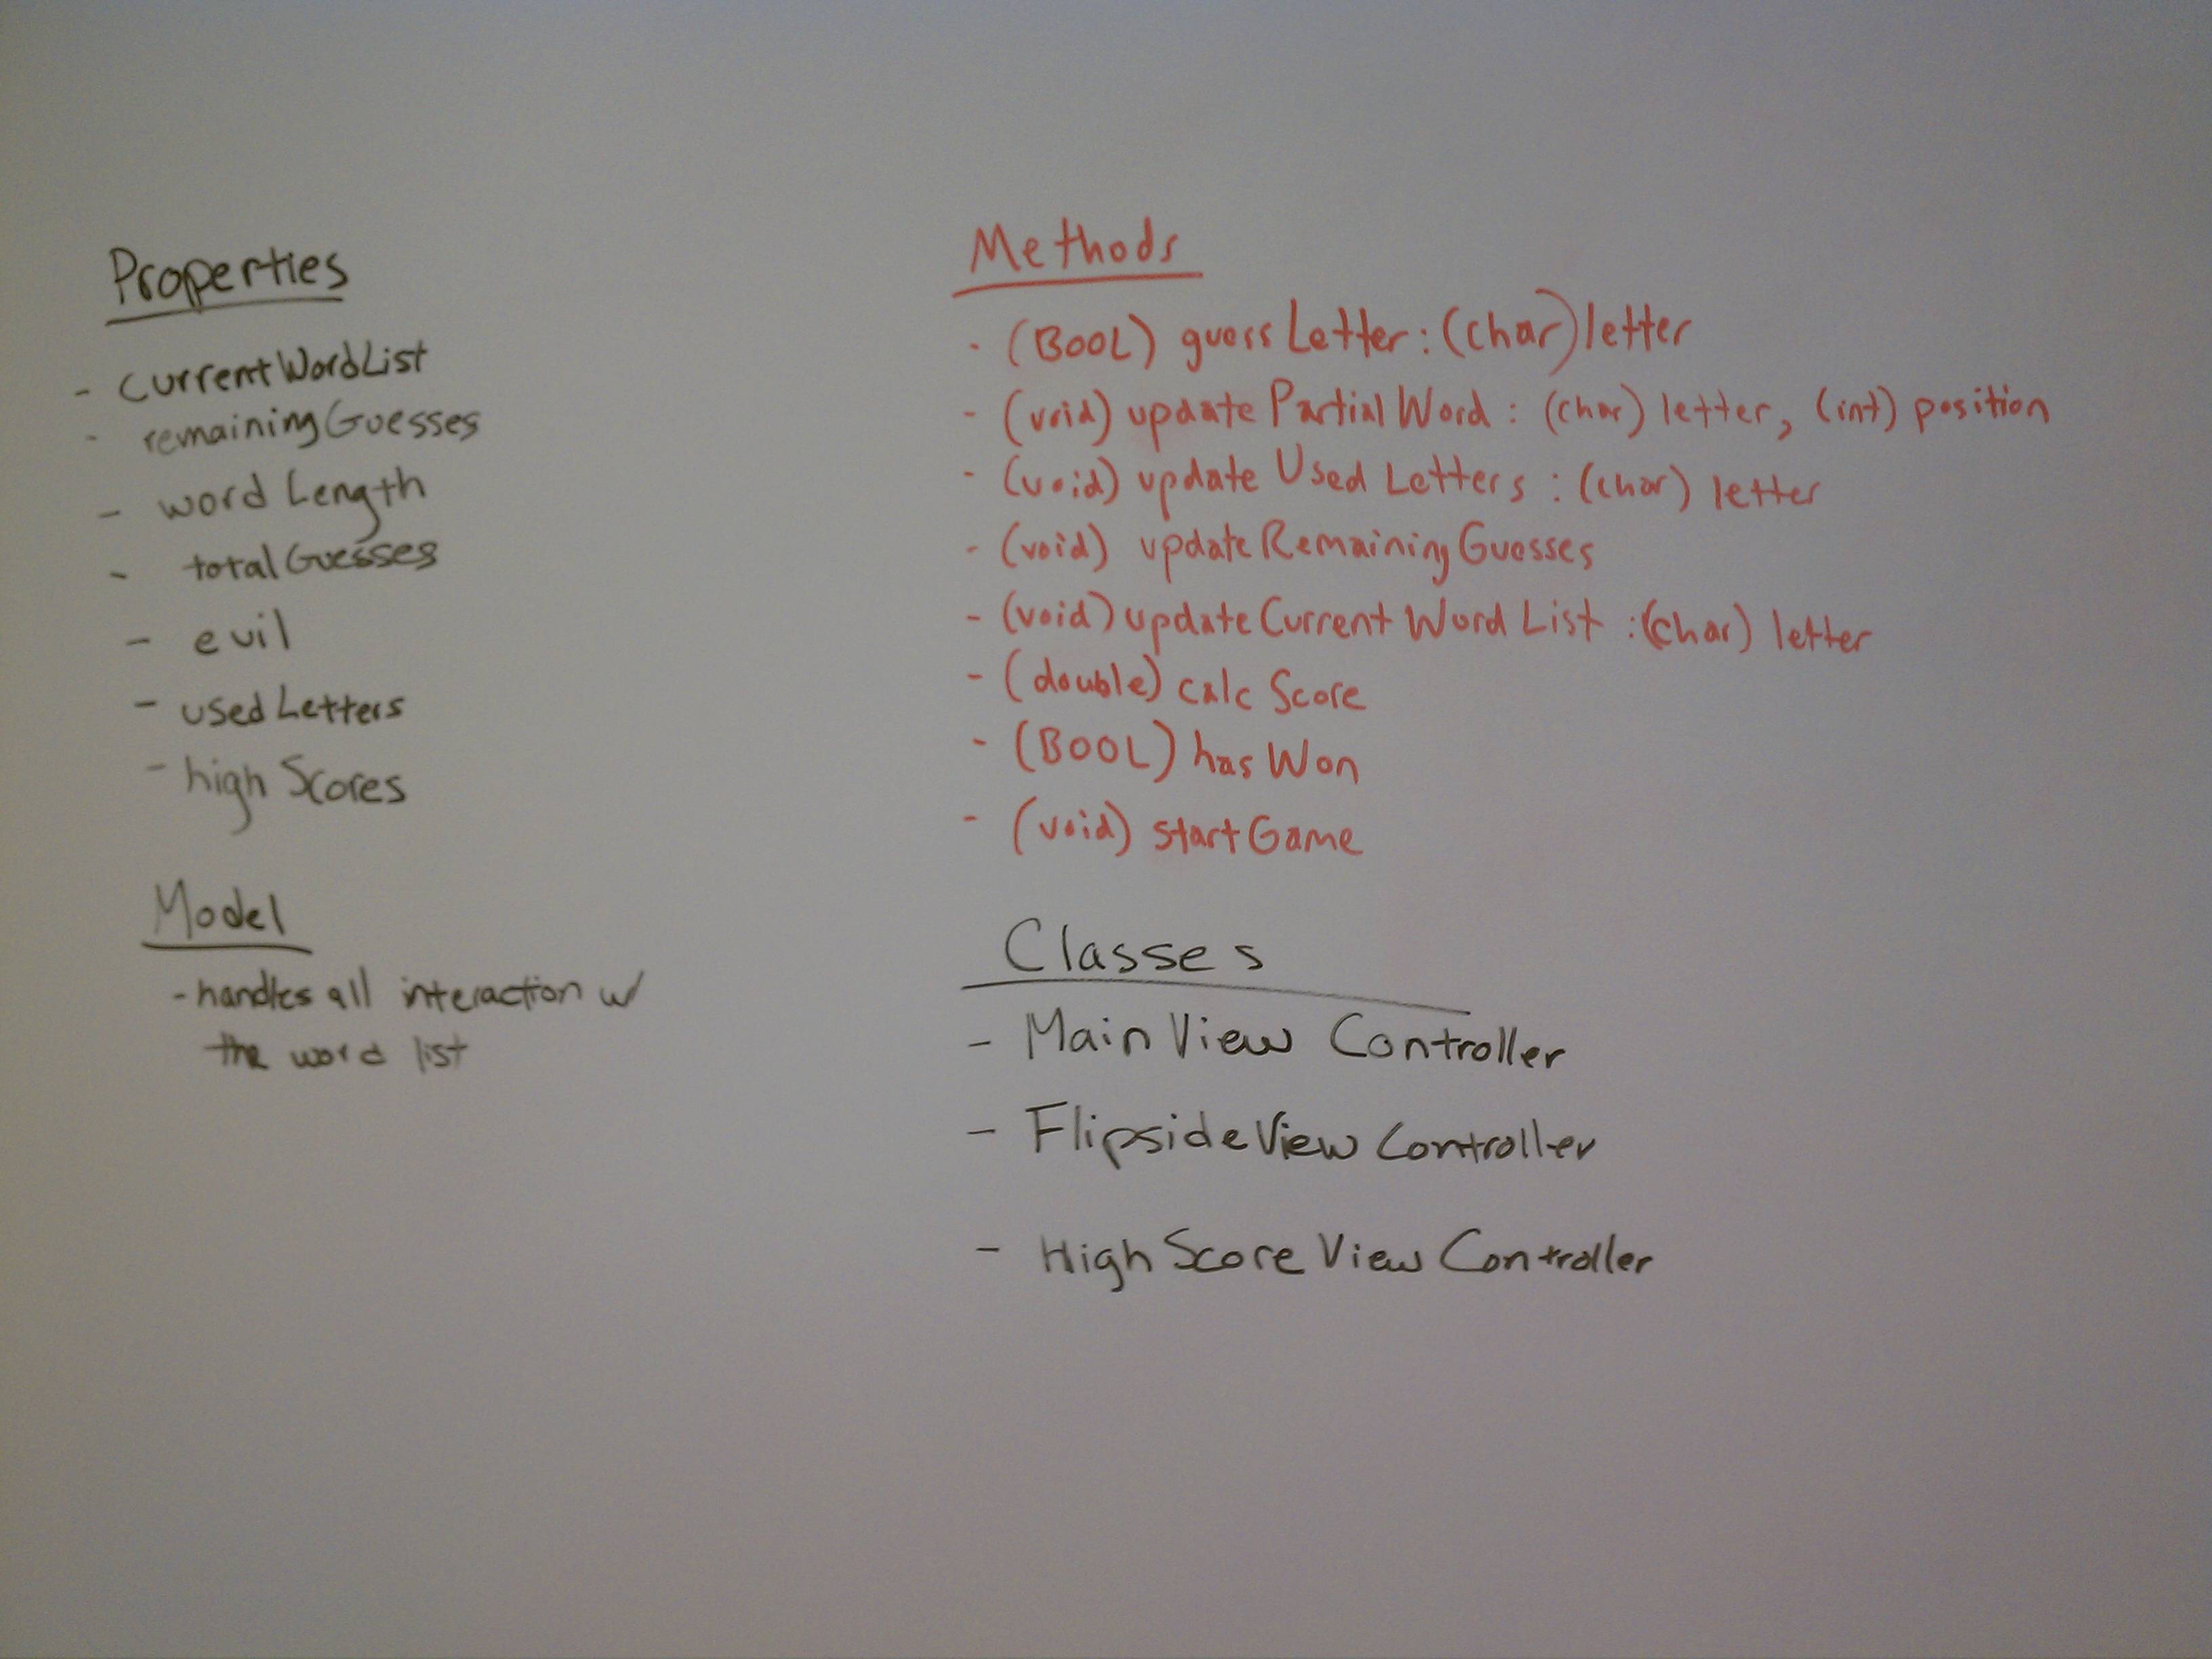 Properties
- currentWordList
- remainingGuesses
- wordLength
- totalGuesses
- evil
- usedLetters
- highScores
Model
- handles all interaction w/
the word list
Methods
- (BOOL) guessLetter: (char) letter
- (void) updatePartialWord: (char) letter, (int) position
- (void) updateUsedLetters: (char) letter
- (void) updateRemainingGuesses
- (void) updateCurrentWordList: (char) letter
- (double) calcScore
- (BOOL) hasWon
- (void) startGame
Classes
- MainViewController
- FlipsideViewController
- HighScoreViewController